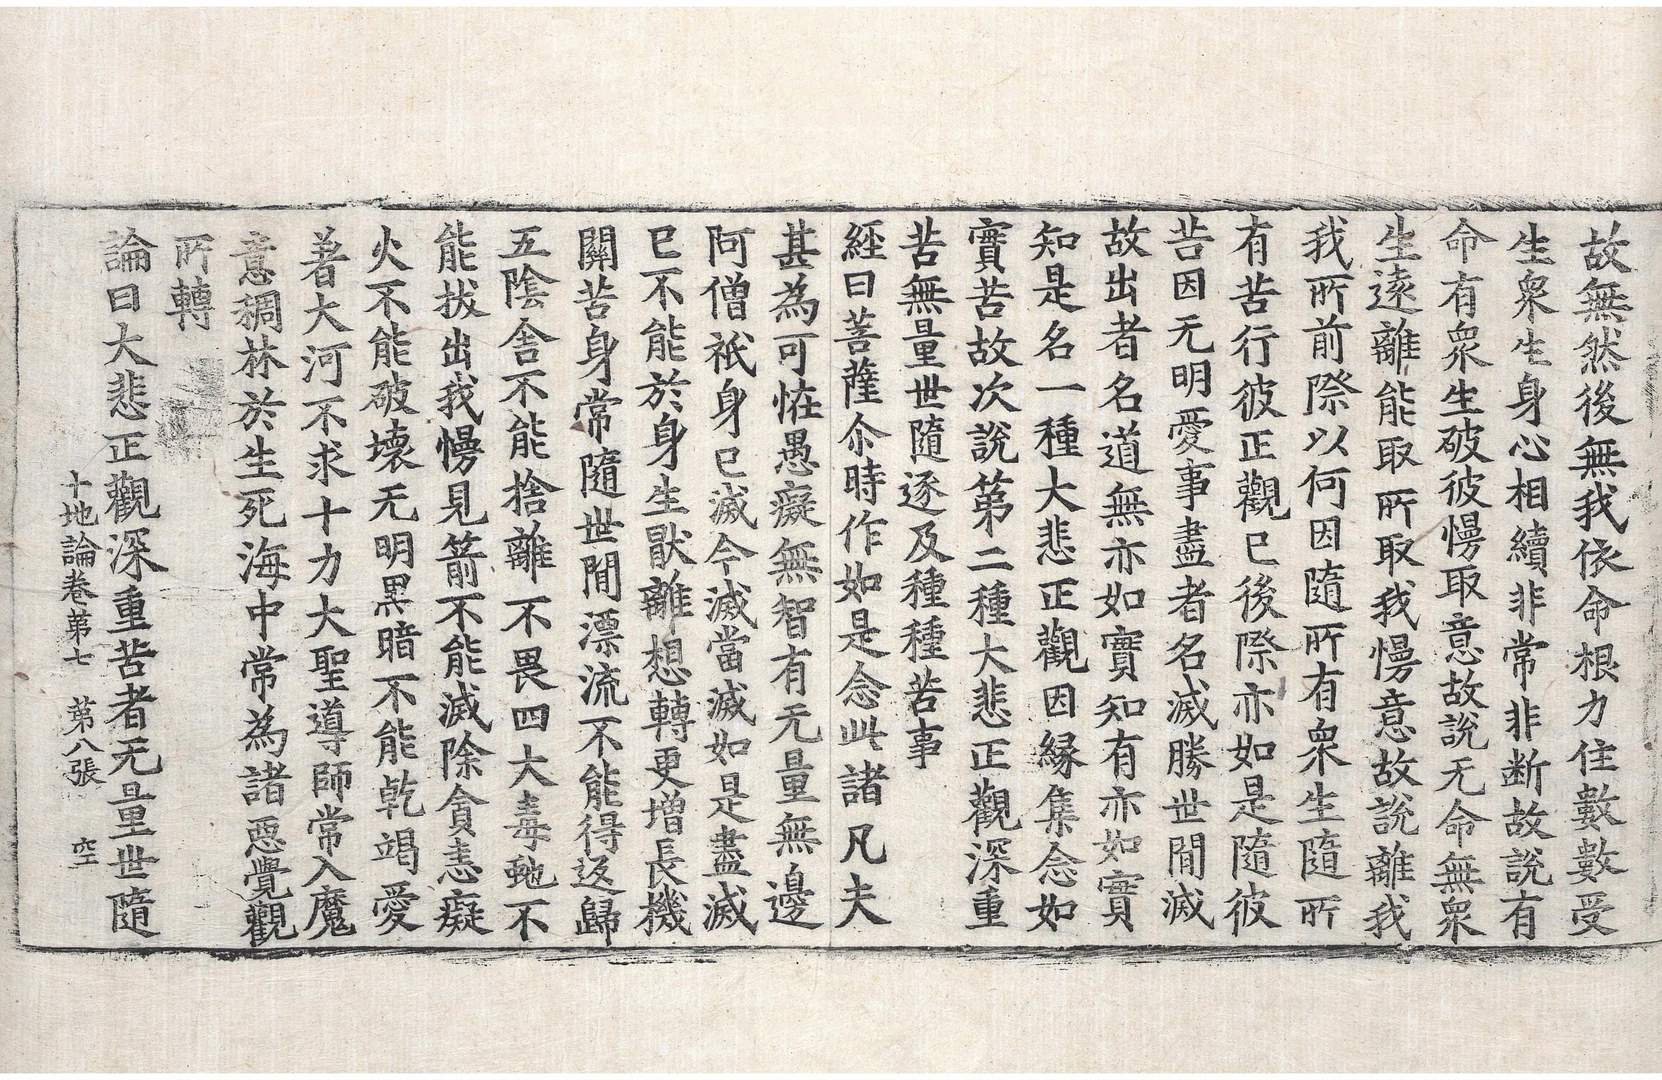 故無然後無我依命根力住數數受
生衆生身心相續非常非断故說有
命有衆生破彼慢取意故說无命無衆
生遠離能取所取我慢意故說離我
我所前際以何因隨所有衆生隨所
有苦行彼正觀已後際亦如是隨彼
苦因无明愛事盡者名滅勝世間滅
故出者名道無亦如實知有亦如實
知是名一種大悲正觀因緣集念如
實苦故次說第二種大悲正觀深重
苦無量世隨逐及種種苦事
經曰菩薩尒時作如是念此諸凡夫
甚為可恠愚癡無智有无量無邊
阿僧祇身已滅今滅當滅如是盡滅
已不能於身生猒離想轉更增長機
關苦身常隨世間漂流不能得返歸
五陰舍不能捨離不畏四大毒虵不
能拔出我慢見箭不能滅除貪恚癡
火不能破壞无明黑暗不能乾竭愛
著大河不求十力大聖導師常入魔
意稠林於生死海中常為諸惡覺觀
所轉
論曰大悲正觀深重苦者无量世隨
十地論卷第七 第八張 空